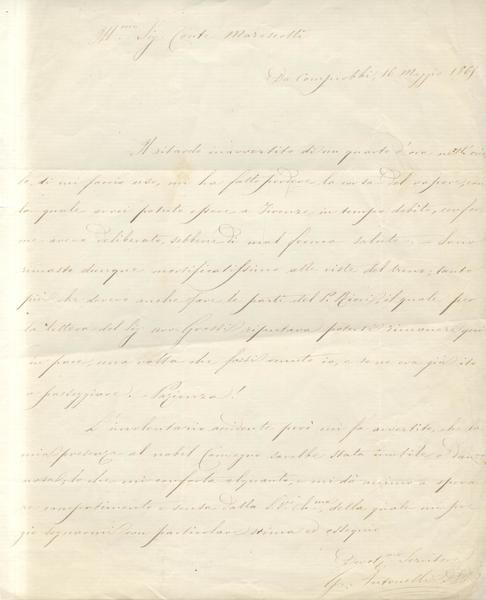 Ill.mo Sig. Conte Marescotti
Da Camprobbi, 16 Maggio 186
Il ritardo inavvertito di un quarto d'ora
di cui faccio uso, mi ha fatto perdere la corsa del vapore, con
la quale avrei potuto essere a Firenze, in tempo debito, confor
me aveva deliberato, sebbene di mal ferma salute. - Sono
rimasto dunque mortificatissimo alle viste del treno; tanto
più che doveva anche fare le parti del P. Ricci, il quale per
la lettera del Sig. avv. Grossi reputava potersi rimanere qui
in pace, una volta che fossi venuto io, e se ne era già ito
a passeggiare. - Pazienza!
L'involontario accidente però mi fa avvertito, che la
mia presenza al nobil Consesso sarebbe stata inutile e dan
nosa; lo che mi conforta alquanto, e mi dà animo a spera
re compatimento e scusa dalla S.V. Ch.ma, della quale mi pre
gio segnarmi con particolare stima ed ossequio
Devot.mo Servitore
G. Antonelli